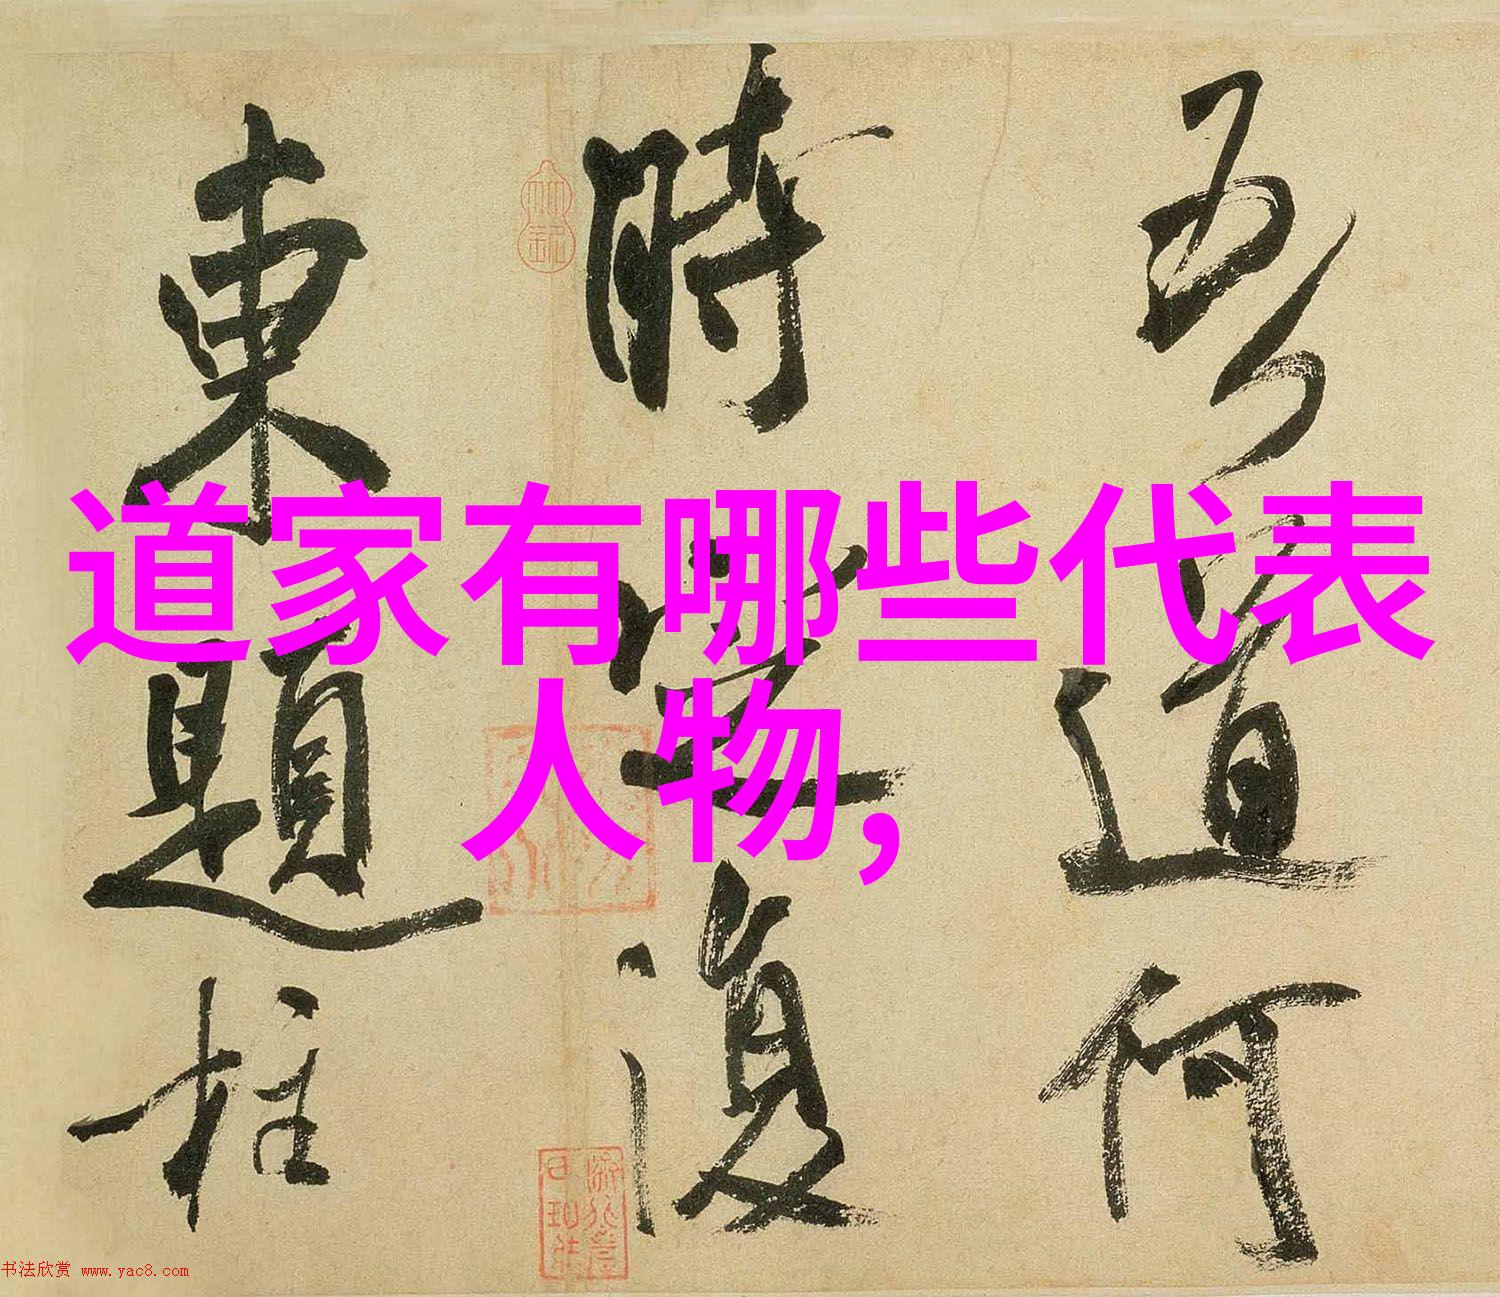 道家有哪些代表
人物,
吾道何
時定復
東題柱
书法欣赏 www.yac8.com